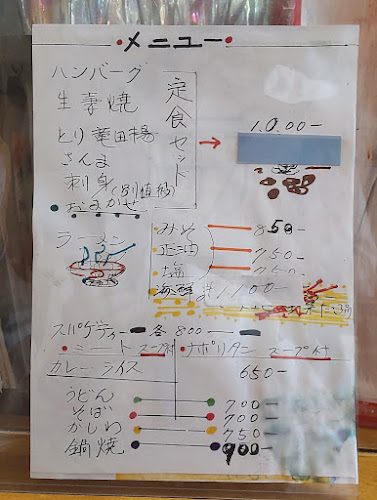 ・メニュー・
ハンバーグ
生姜焼
とり竜田揚
さんま
刺身(別値段)
おまかせ
定食セット
→ 1,000-
ラーメン
みそ 850-
正油 750-
塩 750-
海鮮 1,100-
スパゲティー 各 800
・ミート スープ付 ・ナポリタン スープ付
カレーライス 650-
うどん 700-
そば 700-
かしわ 750-
鍋焼 900-